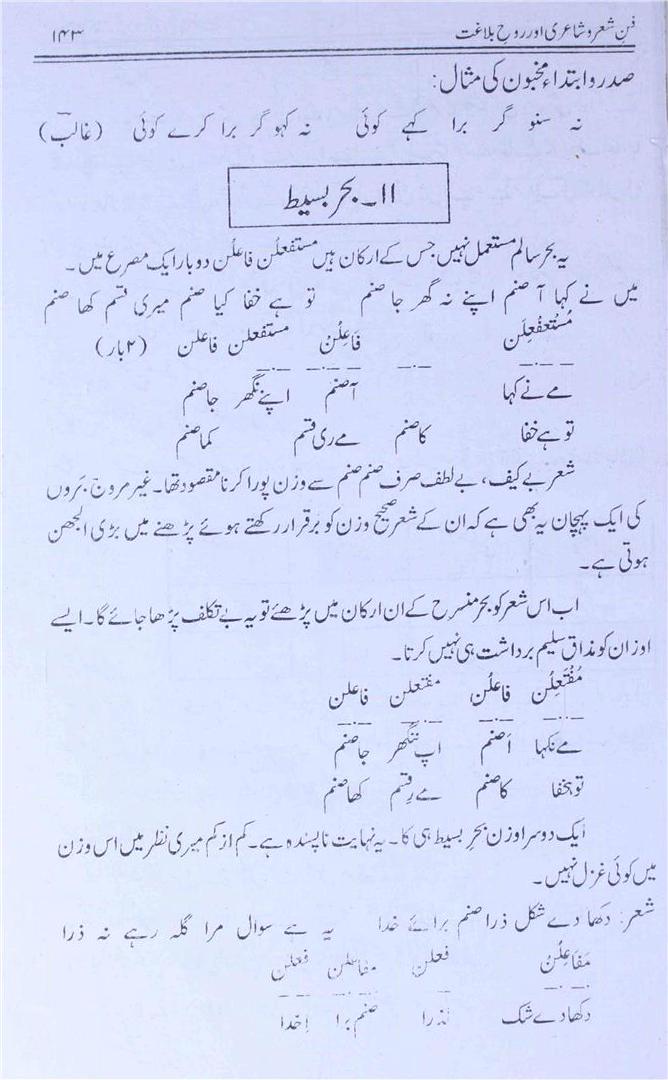 فنِ شعر و شاعری اور روحِ بلاغت ۱۴۳
صدر و ابتداء مخبون کی مثال:
نہ سنو گر برا کہے کوئی نہ کہو گر برا کرے کوئی (غالبؔ)
۱۱۔ بحرِ بسیط
یہ بحر سالم مستعمل نہیں جس کے ارکان ہیں مستفعلُن فاعلُن دو بار ایک مصرع میں۔
میں نے کہا آ صنم اپنے نہ گھر جا صنم تو ہے خفا کیا صنم میری قسم کھا صنم
مُستفعِلُن فاعِلُن مستفعلن فاعلن (۲ بار)
مے نے کہا آ صنم اپنے نگھر جا صنم
تو ہے خفا کا صنم مے ری قسم کھا صنم
شعر بے کیف، بے لطف صرف صنم صنم سے وزن پورا کرنا مقصود تھا۔ غیر مروج بحروں
کی ایک پہچان یہ بھی ہے کہ ان کے شعر صحیح وزن کو برقرار رکھتے ہوئے پڑھنے میں بڑی الجھن
ہوتی ہے۔
اب اس شعر کو بحر منسرح کے ان ارکان میں پڑھئے تو یہ بے تکلف پڑھا جائے گا۔ ایسے
اوزان کو مذاق سلیم برداشت ہی نہیں کرتا۔
مُفتَعِلُن فاعلُن مفتعلن فاعلن
مے نکہا اَصنم اپ ننگھر جا صنم
تو ہخفا کا صنم مے رِقسم کھا صنم
ایک دوسرا وزن بحرِ بسیط ہی کا۔ یہ نہایت ناپسندہ ہے۔ کم از کم میری نظر میں اس وزن
میں کوئی غزل نہیں۔
شعر: دکھا دے شکل ذرا صنم برائے خدا یہ ہے سوال مرا گلہ رہے نہ ذرا
مَفَاعِلُنْ فعلن مفاعلن فعلن
دکھا دے شک لذرا صنم برا اِخدا